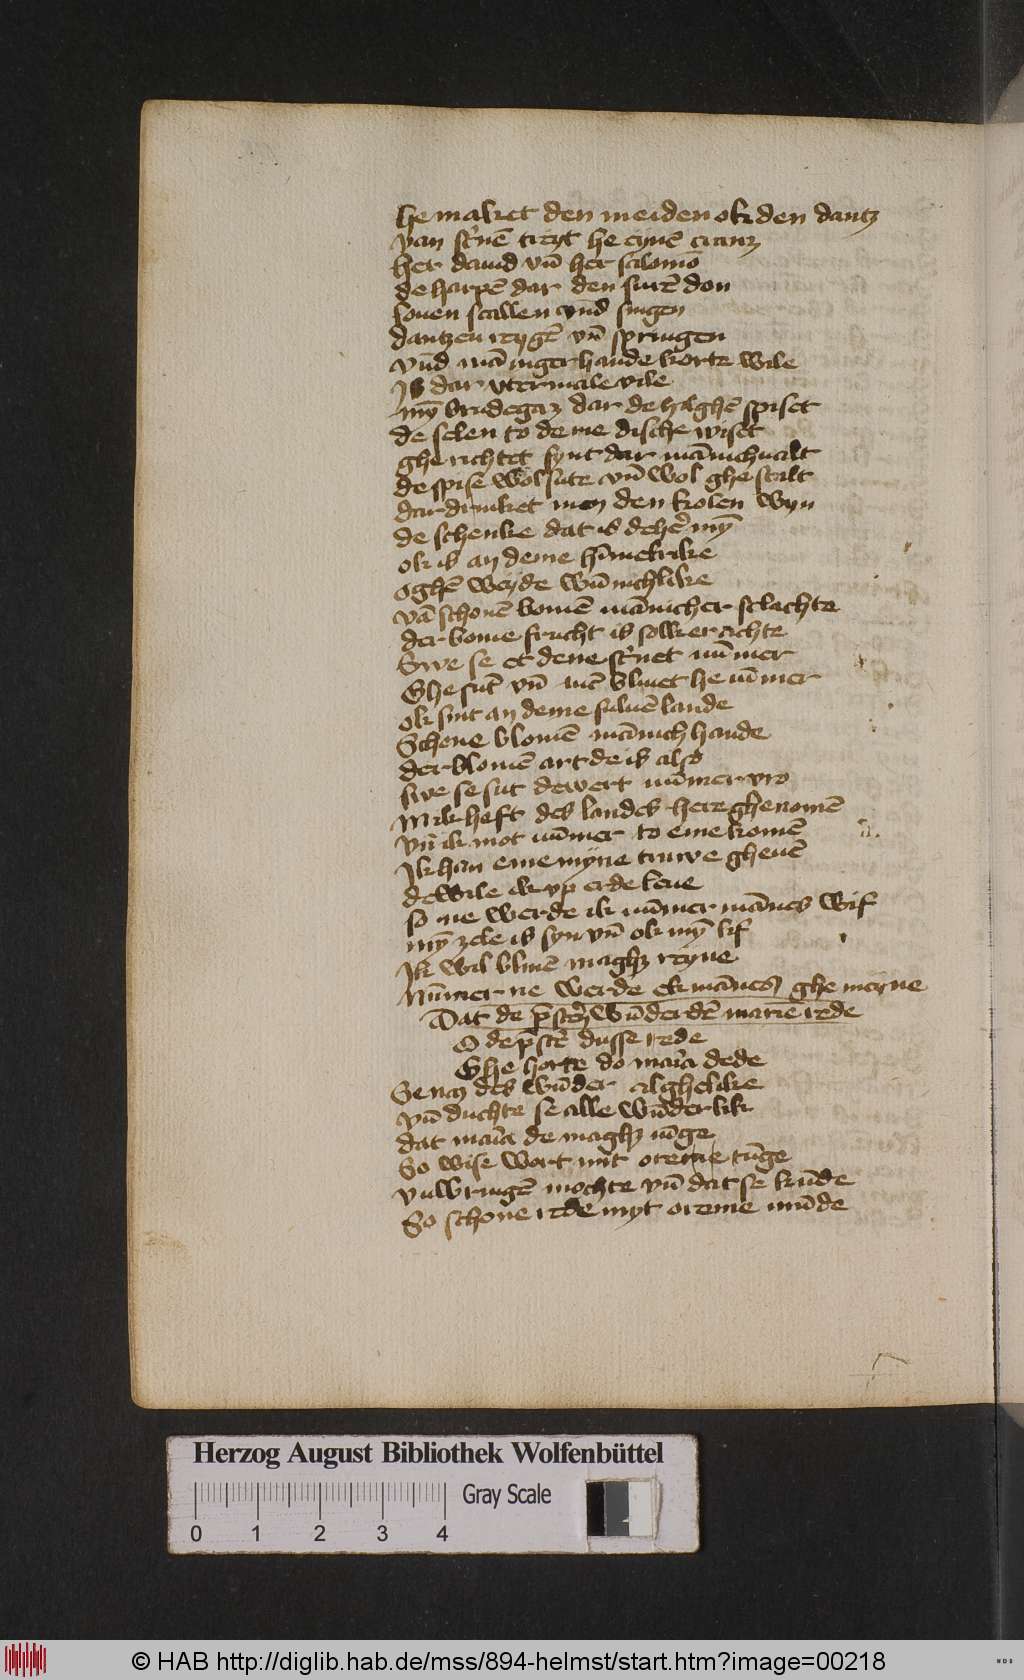 he maket den meiden ok den dantz
van st'nē treyt he eynē crantz
her dauid vn̄ her salomō
de harpē dar den sutē don
louen scallen vnd singen
dantzen reygē vn̄ springen
vnd mānigerhande korte wile
Is dar vtermate vile
my̅ brudegam dar de hilghē spiset
de selen to deme dische wiset
ghe richtet synt dar mānichualt
de spise wol sute vn̄ wol ghe stalt
dar drinket men den kolen wyn
de schenke dat is de he' my̅
ok is an deme hīmelrike
oghē weyde wūnichlike
vā schonē bomē mānicher sclachte
der bome frucht is solker achte
Swe se et dene st'uet nūmer
Ghesūt vn̄ bliuet he ūmer
ok sint an deme suluē lande
Schone blomē mānich hande
der blomē art de is also
swe se sut de wert nūmer vro
Mik heft des landes here ghenomē
vn̄ ik mot nūmer to eme komē
Ik han eme myne truwe gheuē
de wile ik vp erde leue
so ne werde ik nūmer mānes wif
my̅ zele is syn vn̄ ok my̅ lif
Ik wil bliuē maghet reyne
Nūmer ne werde ek mānes ghe meyne
Dat de p̄ster wūderdē mariē rede
O de p̄stē dusse rede
Ghe horte do mar'a dede
Se nam des wūder alghelike
vn̄ duchte se alle wūderlik
dat mar'a de maghet iūge
So wise wort mit oreme tūge
vulbringē mochte vn̄ dat se kūde
So schone rede myt oreme mūde
Herzog August Bibliothek Wolfenbüttel
Gray Scale
0 1 2 3 4
© HAB http://diglib.hab.de/mss/894-helmst/start.htm?image=00218